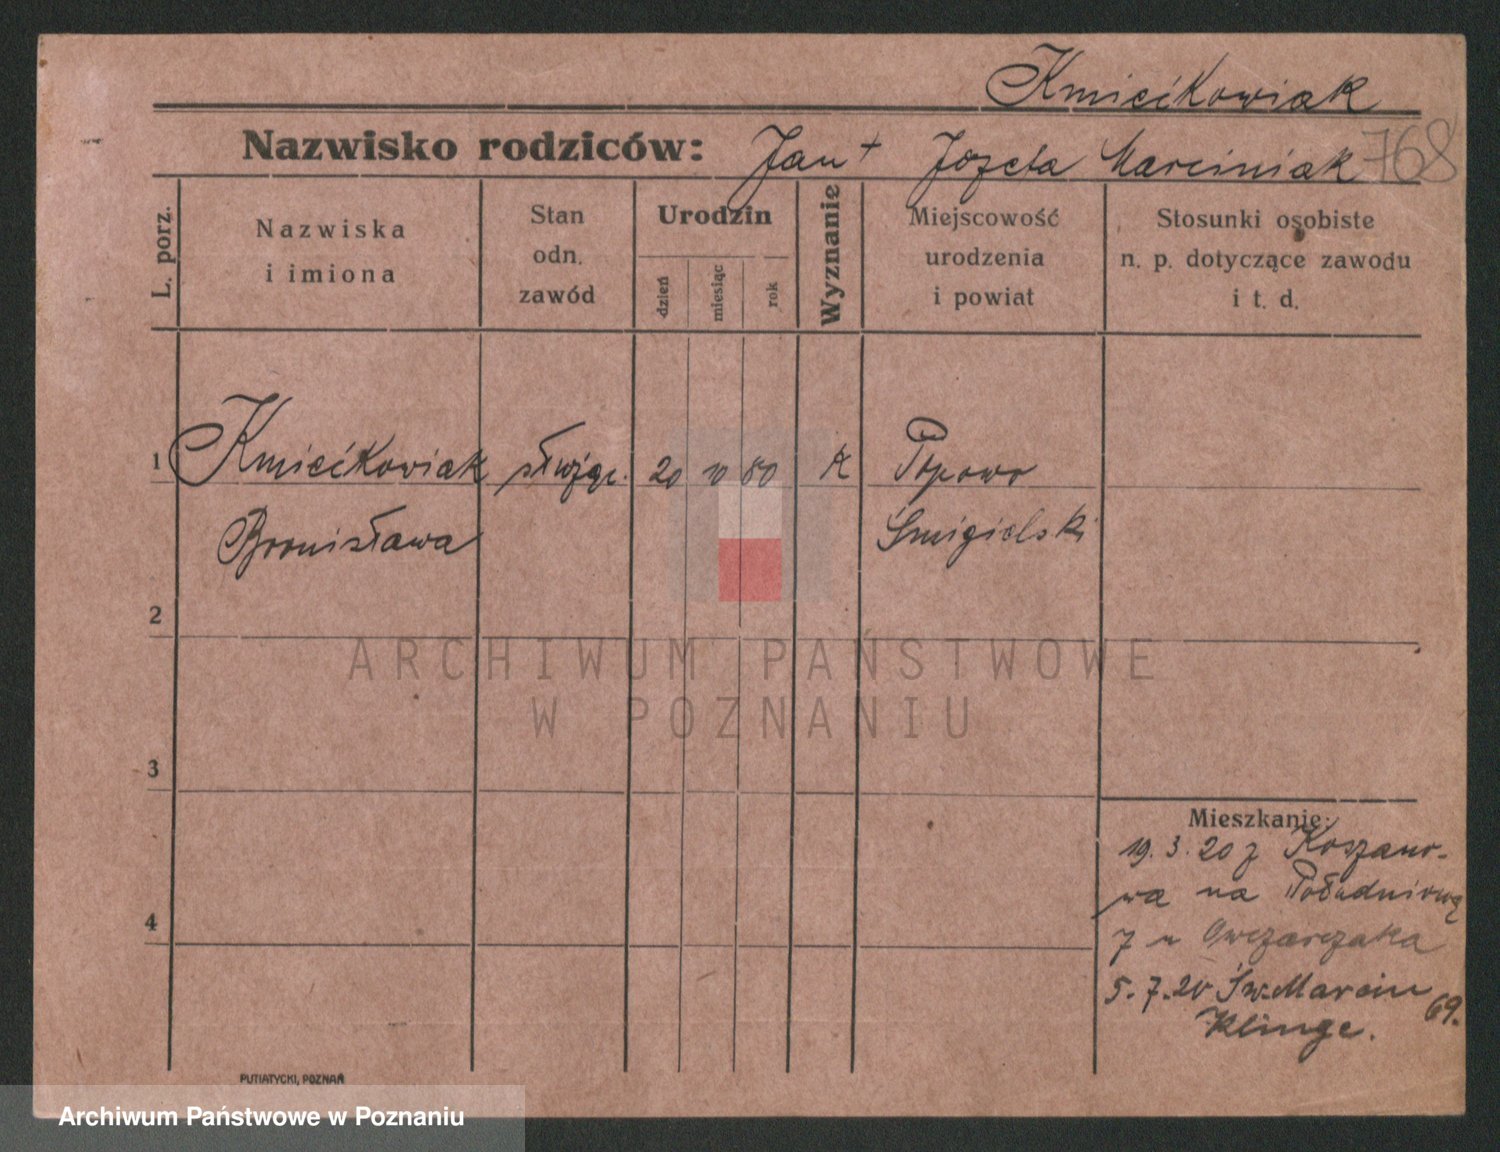 Kmiećkowiak
Nazwisko rodziców: Jan + Józefa Marciniak 768
L. porz.
Nazwiska
i imiona
Stan
odn.
zawód
Urodzin
dzień
miesiąc
rok
Wyznanie
Miejscowość
urodzenia
i powiat
Stosunki osobiste
n. p. dotyczące zawodu
i t. d.
1 Kmiećkowiak służąc. 20 10 80 K Popowo
Bronisława Śmigielski
2
ARCHIWUM PAŃSTWOWE
W POZNANIU
3
Mieszkanie:
19.3.20 z Koszano-
wa na Południową
7 u Owczarzaka
4
5.7.20 Św. Marcin 69.
Klinge.
PUTIATYCKI, POZNAŃ
Archiwum Państwowe w Poznaniu